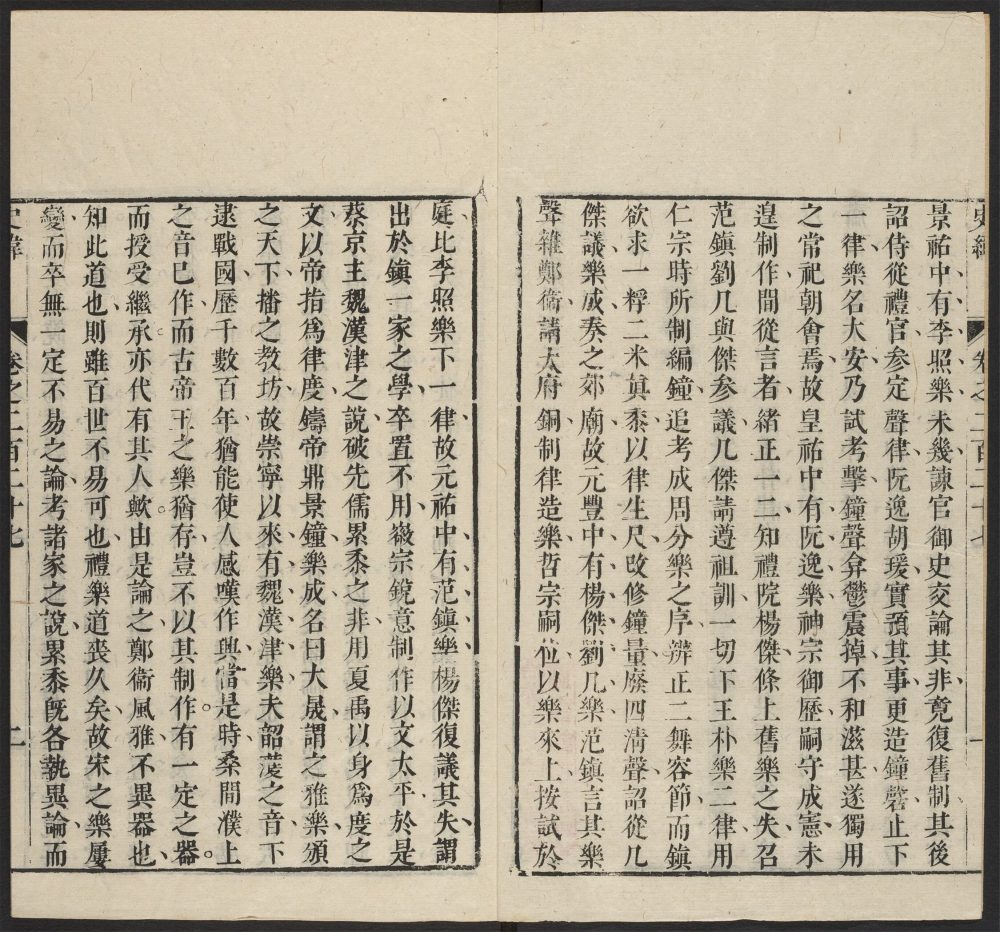 史緯 卷之二百二十七 一
景祐中有李照樂未幾諫官御史交論其非竟復舊制其後
詔侍從禮官參定聲律阮逸胡瑗實預其事更造鐘磬止下
一律樂名大安乃試考擊鐘聲弇鬱震掉不和滋甚遂獨用
之常祀朝會焉故皇祐中有阮逸樂神宗御歷嗣守成憲未
遑制作間從言者緒正一二知禮院楊傑條上舊樂之失召
范鎮劉几與傑參議几傑請遵祖訓一切下王朴樂二律用
仁宗時所制編鐘追考成周分樂之序辨正二舞容節而鎮
欲求一稃二米真黍以律生尺改修鐘量廢四清聲詔從几
傑議樂成奏之郊廟故元豐中有楊傑劉几樂范鎮言其樂
聲雜鄭衛請太府銅制律造樂哲宗嗣位以樂來上按試於
庭比李照樂下一律故元祐中有范鎮樂楊傑復議其失謂
出於鎮一家之學卒置不用徽宗銳意制作以文太平於是
蔡京主魏漢津之說破先儒累黍之非用夏禹以身為度之
文以帝指為律度鑄帝鼎景鐘樂成名曰大晟謂之雅樂頒
之天下播之教坊故崇寧以來有魏漢津樂夫韶濩之音下
逮戰國歷千數百年猶能使人感嘆作興當是時桑間濮上
之音已作而古帝王之樂猶存豈不以其制作有一定之器
而授受繼承亦代有其人歟由是論之鄭衛風雅不異器也
知此道也則雖百世不易可也禮樂道喪久矣故宋之樂屢
變而卒無一定不易之論考諸家之說累黍既各執異論而
史緯 卷之二百二十七 二